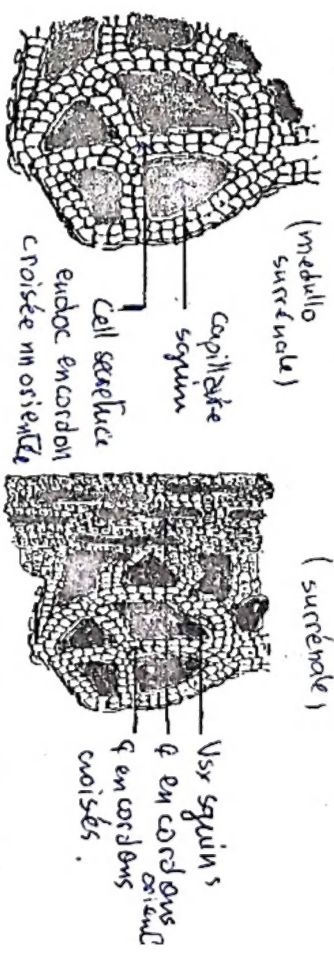 (medullo
surrénale)
capillaire
sguin
Cell secretrice
endoc en cordon
croisée nn orientée
(surrénale)
Vsx sguins
¢ en cordons
orient
¢ en cordons
croisés.